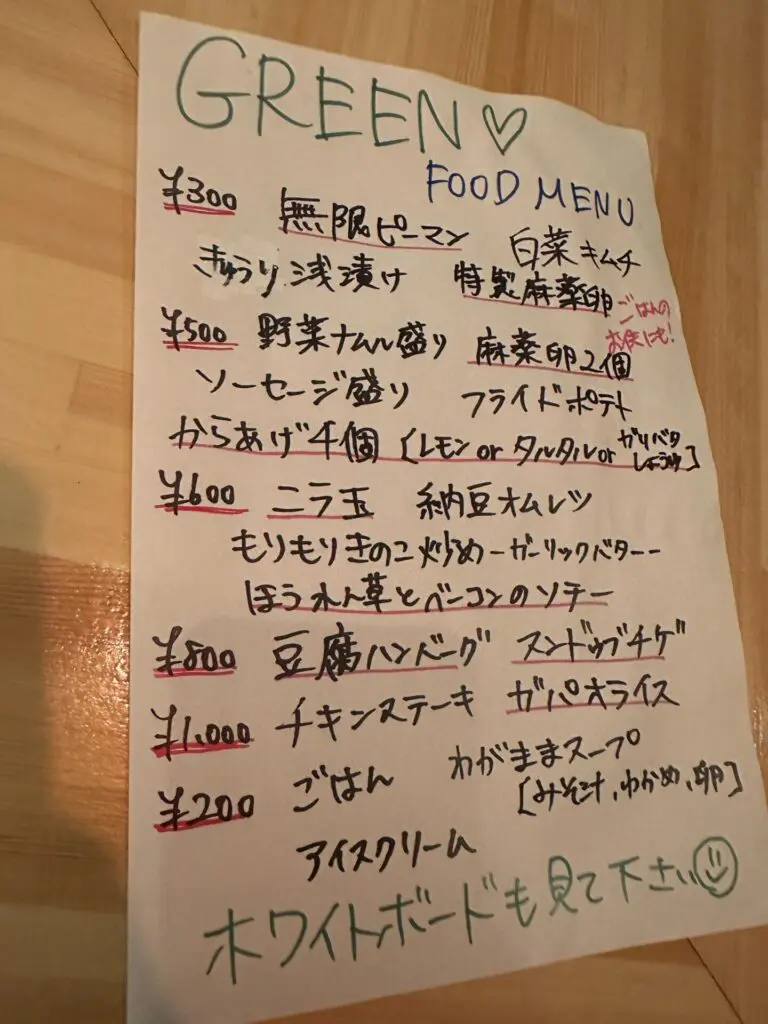 GREEN♡
FOOD MENU
¥300 無限ピーマン 白菜キムチ
きゅうり浅漬け 特製麻薬卵 ごはんの
お供にも!
¥500 野菜ナムル盛り 麻薬卵2個
ソーセージ盛り フライドポテト
からあげ4個 [レモン or タルタル or ガリバタ
しょうゆ]
¥600 ニラ玉 納豆オムレツ
もりもりきのこ炒めーガーリックバターー
ほうれん草とベーコンのソテー
¥800 豆腐ハンバーグ スンドゥブチゲ
¥1,000 チキンステーキ ガパオライス
¥200 ごはん わがままスープ
[みそ汁、わかめ、卵]
アイスクリーム
ホワイトボードも見て下さい☺